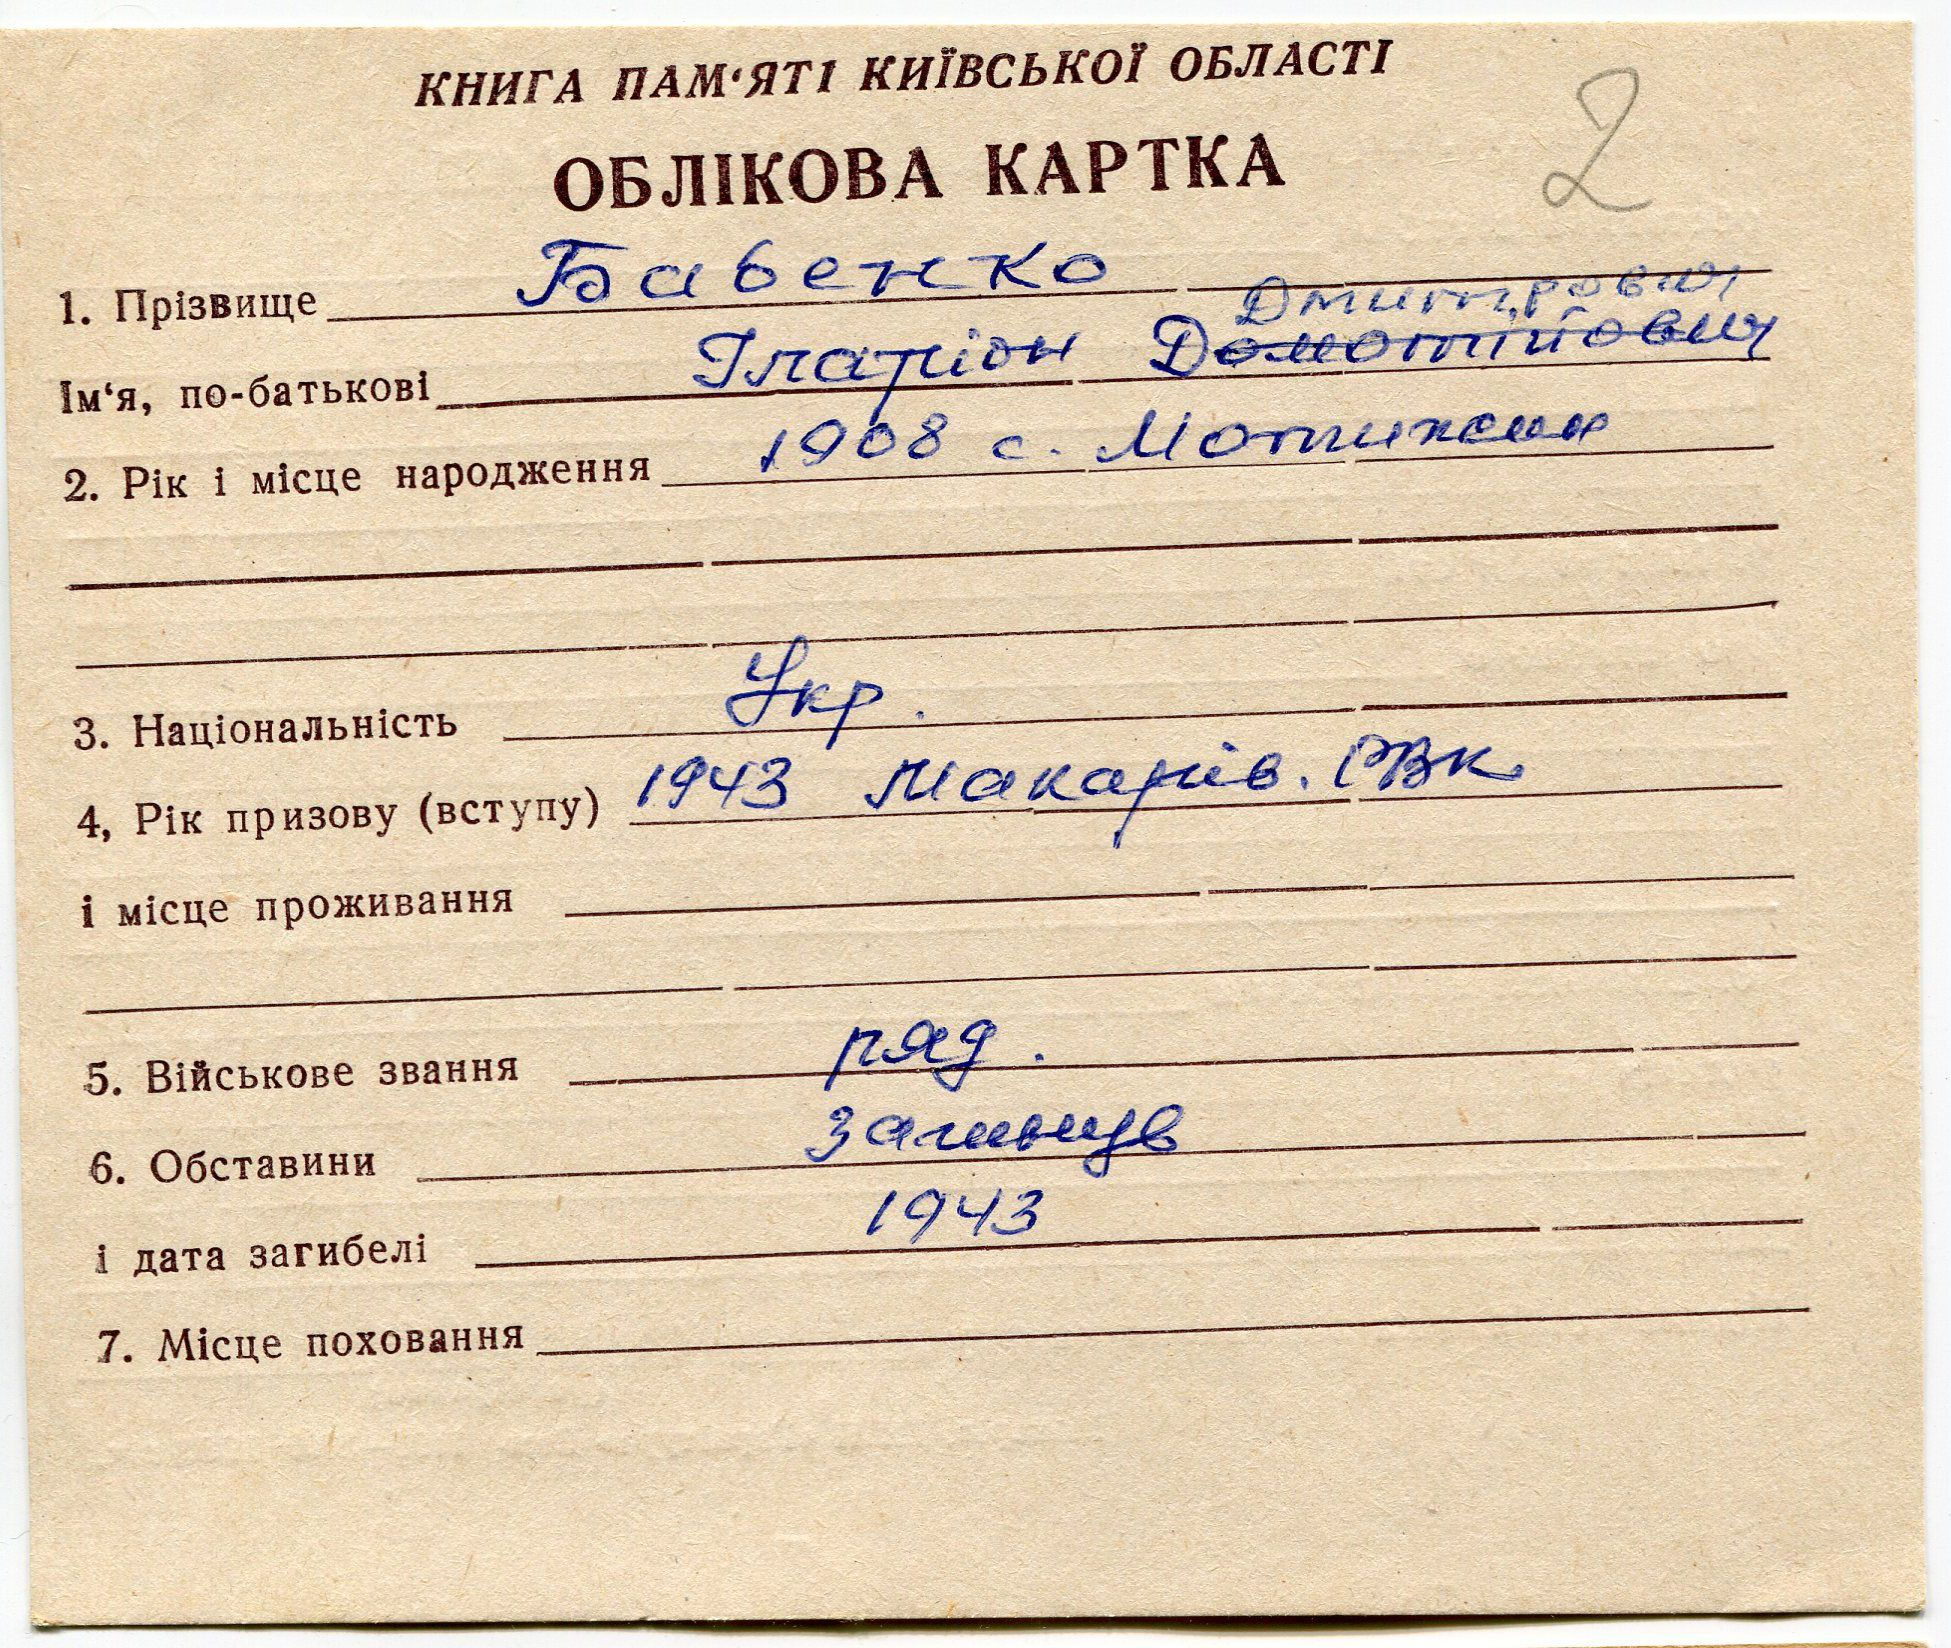 КНИГА ПАМ‘ЯТІ КИЇВСЬКОЇ ОБЛАСТІ
2
ОБЛІКОВА КАРТКА
1. Прізвище Бабенко
Дмитрович
Ім‘я, по-батькові Іларіон
2. Рік і місце народження 1908 с. Мотижин
3. Національність Укр.
4, Рік призову (вступу) 1943 Макарів. РВК
і місце проживання
5. Військове звання ряд.
6. Обставини Загинув
і дата загибелі 1943
7. Місце поховання